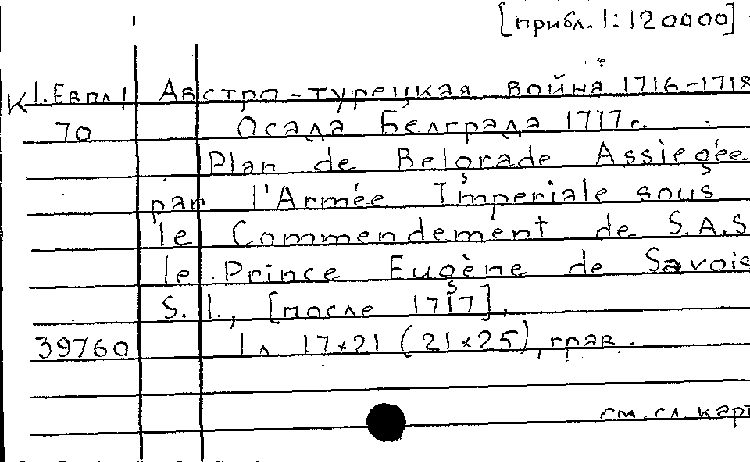 [прибл. 1:120000]
К 1.Евпл1 Австро-турецкая война 1716-1718
70 Осада Белграда 1717г.
Plan de Belgrade Assiegée
par l'Armée Imperiale sous
le Commendement de S.A.S
le Prince Eugène de Savoie
S.l., [после 1717].
39760 1 л 17×21 (21×25), грав.
см. сл. карт